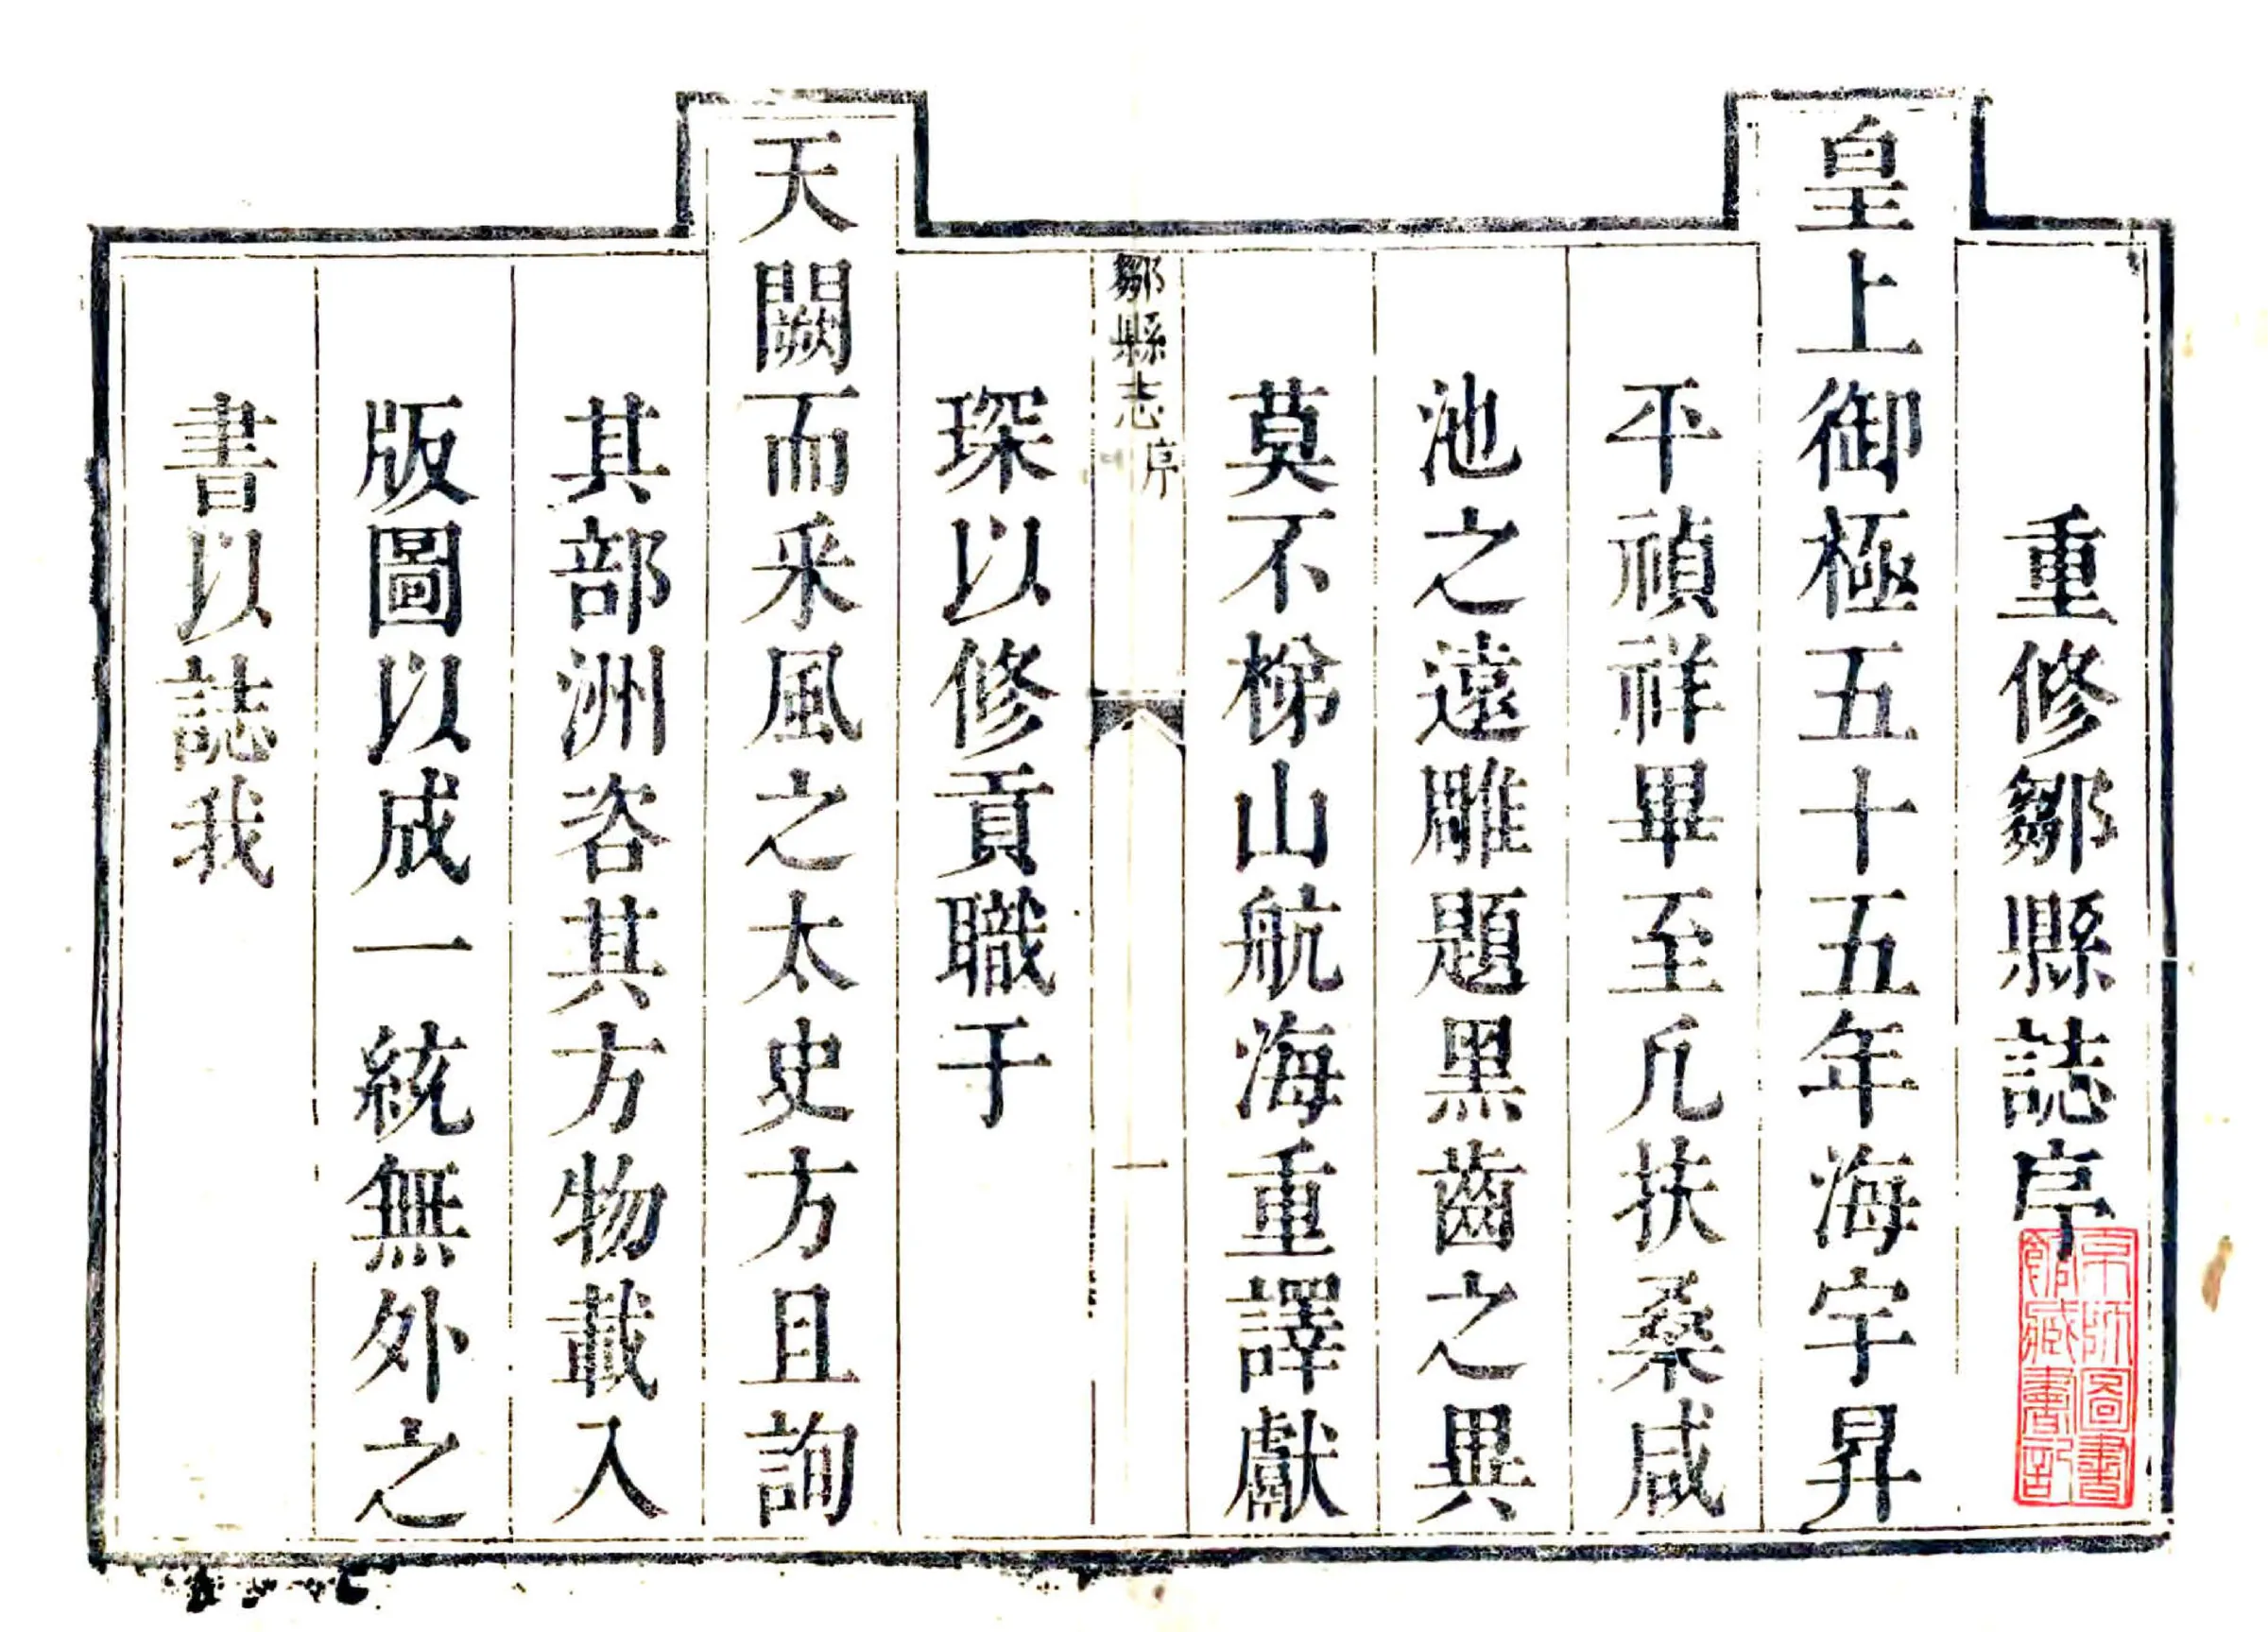 重修鄒縣誌序
皇上御極五十五年海宇昇
平禎祥畢至凡扶桑咸
池之遠雕題黑齒之異
莫不梯山航海重譯獻
鄒縣志
序
一
琛以修貢職于
天闕而采風之太史方且詢
其部洲咨其方物載入
版圖以成一統無外之
書以誌我
京師圖書
館藏書記